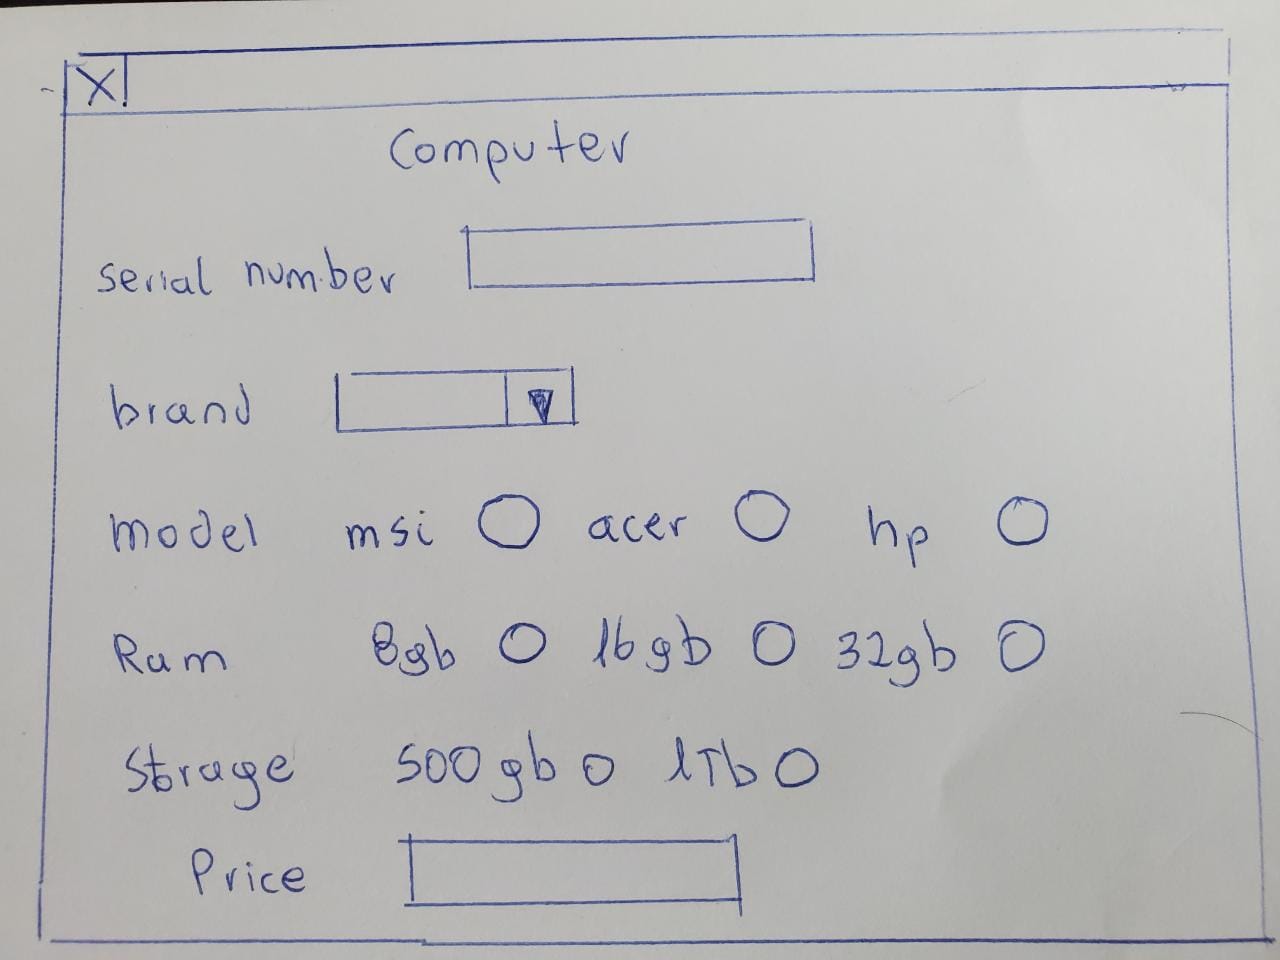 X
Computer
serial number
brand
model msi acer hp
Ram 8gb 16gb 32gb
Storage 500gb 1Tb
Price